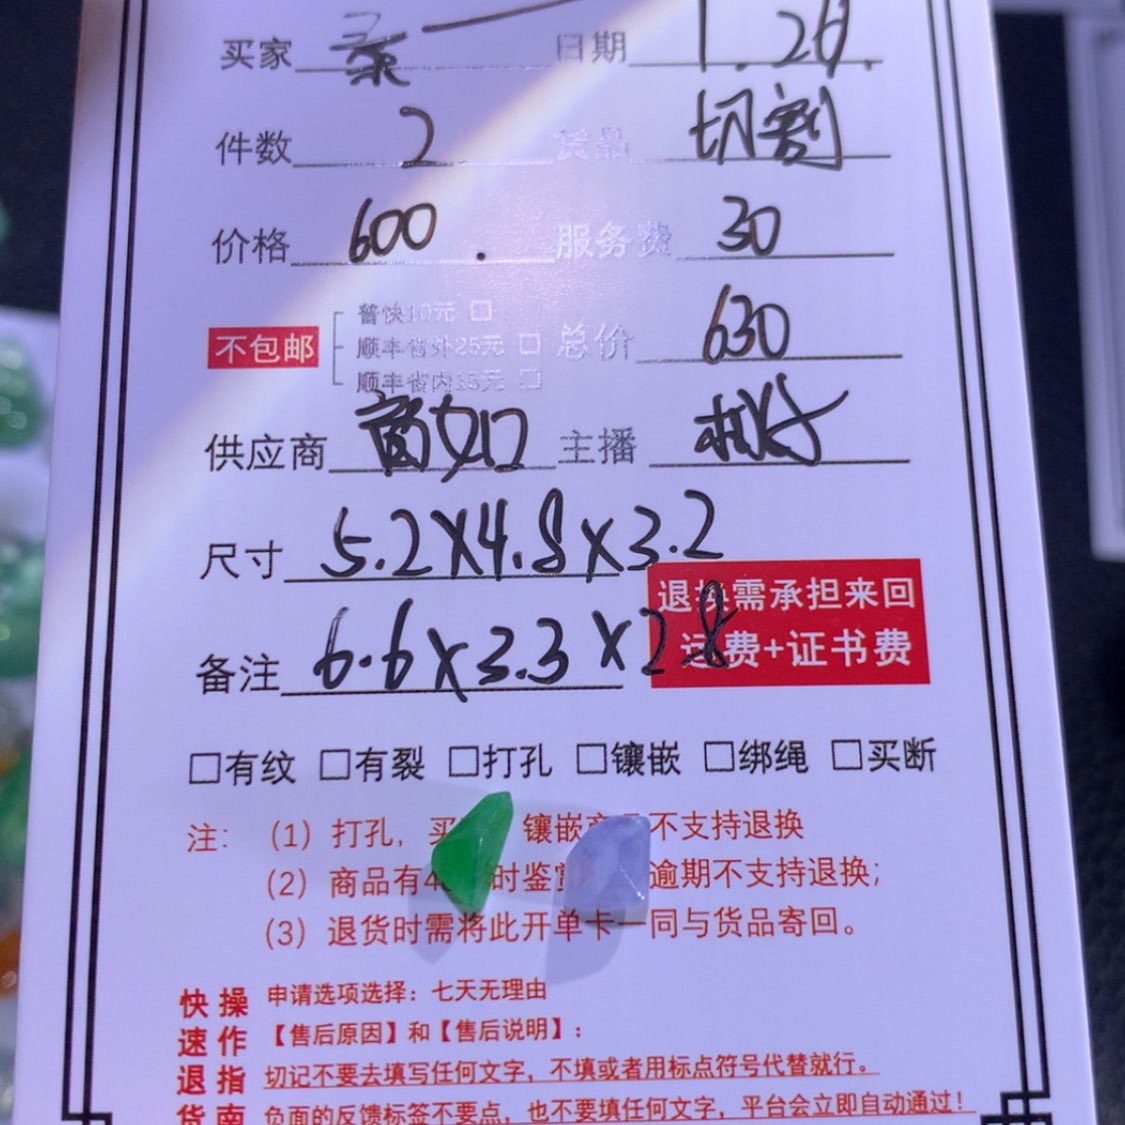 买家 日期 1.26.
件数 2 货品 切割
价格 600. 服务费 30
普快10元 □
不包邮 顺丰省外25元 □ 总价 630
顺丰省内15元 □
供应商 主播
尺寸 5.2X4.8X3.2
退换需承担来回
备注 6.6X3.3X2.8 运费+证书费
□有纹 □有裂 □打孔 □镶嵌 □绑绳 □买断
注：（1）打孔，买 镶嵌 不支持退换
（2）商品有4 时鉴 逾期不支持退换；
（3）退货时需将此开单卡一同与货品寄回。
快操 申请选项选择：七天无理由
速作 【售后原因】和【售后说明】：
退指 切记不要去填写任何文字，不填或者用标点符号代替就行。
货南 负面的反馈标签不要点，也不要填任何文字，平台会立即自动通过！